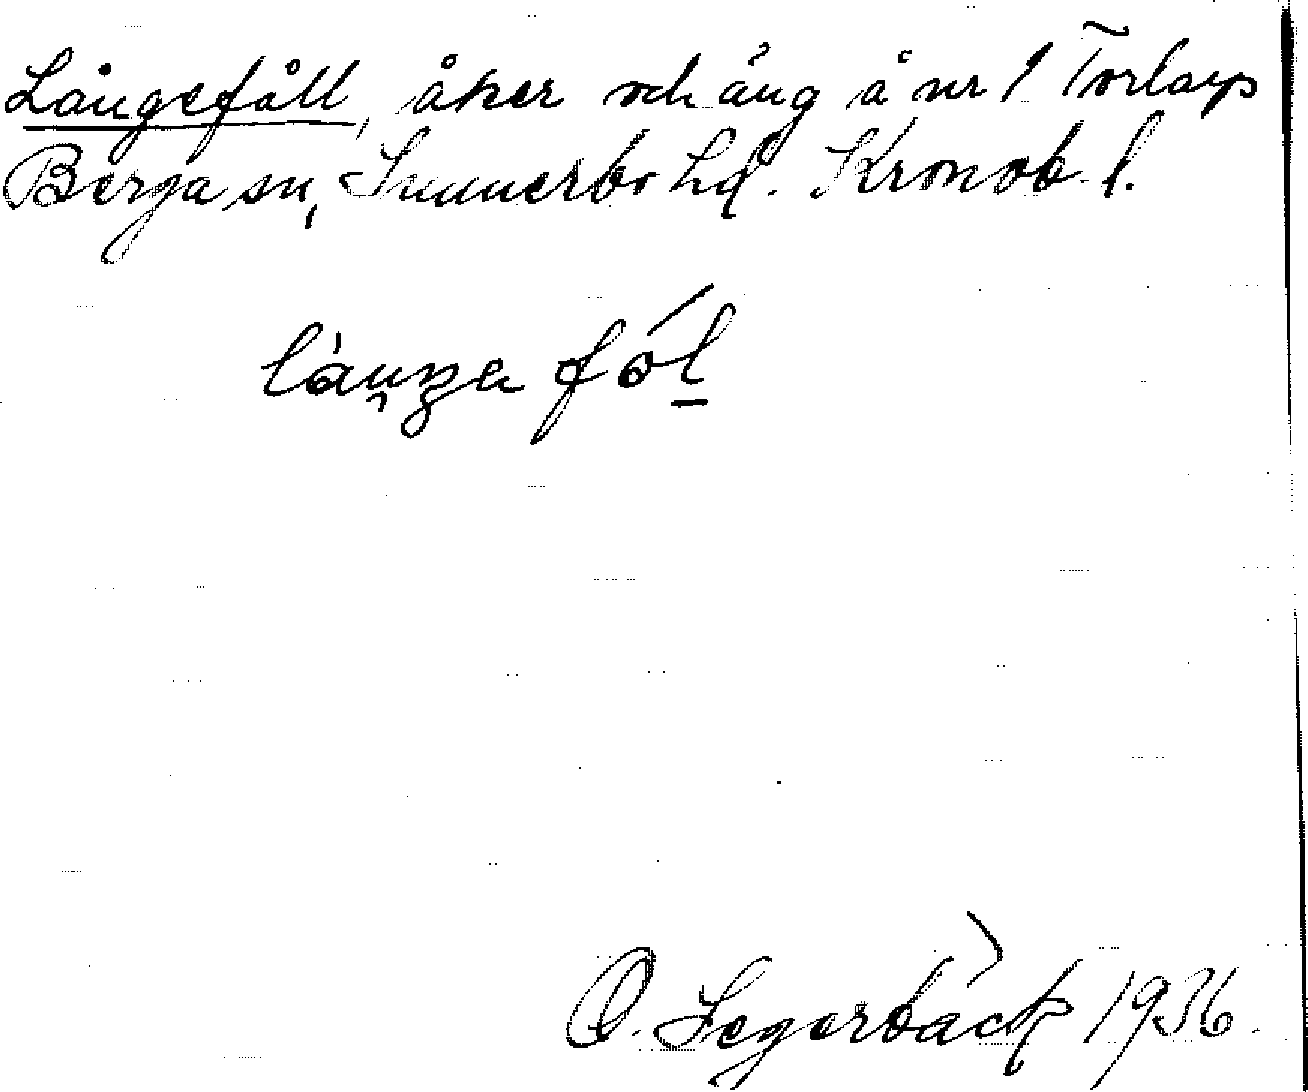 Långefåll, åker och äng å nr 1 Torlarp
Berga sn, Sunnerbo hd. Kronob. l.
O. Segerbäck 1936.